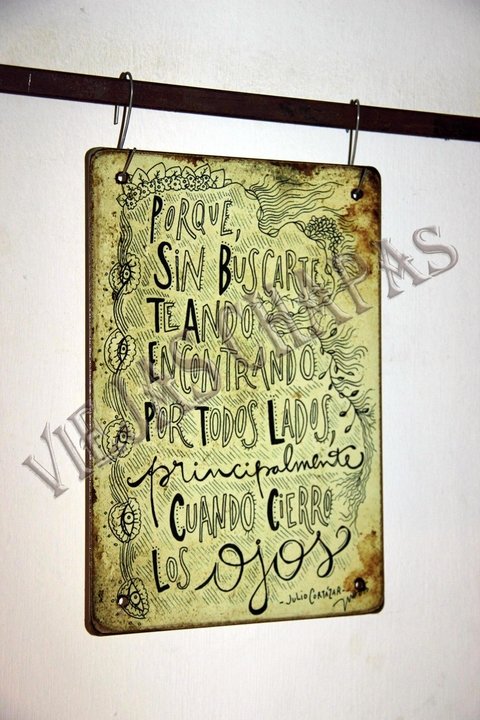 PORQUE,
SIN BUSCARTE
TE ANDO
ENCONTRANDO
POR TODOS LADOS,
principalmente
CUANDO CIERRO
LOS ojos
-JULIO CORTÁZAR-
VIEJAS CHAPAS